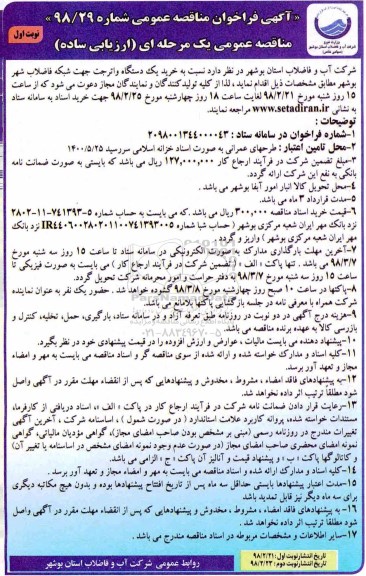 «آگهی فراخوان مناقصه عمومی شماره ۹۸/۲۹»
نوبت اول
مناقصه عمومی یک مرحله ای (ارزیابی ساده)
شرکت آب و فاضلاب استان بوشهر در نظر دارد نسبت به خرید یک دستگاه واترجت جهت شبکه فاضلاب شهر
بوشهر مطابق مشخصات ذیل اقدام نماید، لذا از کلیه تولیدکنندگان و نمایندگان مجاز دعوت می شود که از ساعت
۱۵ روز شنبه مورخ ۹۸/۲/۲۱ لغایت ساعت ۱۸ روز چهارشنبه مورخ ۹۸/۲/۲۵ جهت خرید اسناد به سامانه ستاد
به نشانی www.setadiran.ir مراجعه نمایند.
توضیحات :
۱-شماره فراخوان در سامانه ستاد : ۲۰۹۸۰۰۱۳۴۴۰۰۰۰۴۳
۲-محل تامین اعتبار : طرحهای عمرانی به صورت اسناد خزانه اسلامی سررسید ۱۴۰۰/۵/۲۵
۳-مبلغ تضمین شرکت در فرآیند ارجاع کار ۱۲۷,۰۰۰,۰۰۰ ریال می باشد که بایستی به صورت ضمانت نامه
بانکی به نفع این شرکت ارائه گردد.
۴-محل تحویل کالا انبار امور آبفا بوشهر می باشد .
۵-مدت قرارداد ۳ ماه می باشد.
۶-قیمت خرید اسناد مناقصه ۳۰۰,۰۰۰ ریال می باشد .که می بایست به حساب شماره ۵-۷۴۱۳۹۳-۱۱-۲۸۰۲
نزد بانک مهر ایران شعبه مرکزی بوشهر ( حساب شبا شماره IR۴۴۰۶۰۰۲۸۰۲۰۱۱۰۰۷۴۱۳۹۳۰۰۵ نزد بانک
مهر ایران شعبه مرکزی بوشهر ) واریز و گردد .
۷-آخرین مهلت بارگذاری مدارک به صورت الکترونیکی در سامانه ستاد تا ساعت ۱۵ روز سه شنبه مورخ
۹۸/۳/۷ می باشد . تنها پاکت « الف » (تضمین شرکت در فرآیند ارجاع کار ) می بایست به صورت فیزیکی تا
ساعت ۱۵ روز سه شنبه مورخ ۹۸/۳/۷ به دفتر حراست و امور محرمانه شرکت تحویل گردد.
۸-پاکتها در ساعت ۱۰ صبح روز چهارشنبه مورخ ۹۸/۳/۸ گشوده خواهد شد . حضور یک نفر به عنوان نماینده
شرکت همراه با معرفی نامه در جلسه بازگشایی پاکتها بلامانع می باشد.
۹-هزینه درج آگهی در دو نوبت در روزنامه طبق تعرفه آزاد و در سامانه ستاد، بارگیری، حمل، تخلیه، کنترل و
بازرسی کالا به عهده برنده مناقصه می باشد.
۱۰-پیشنهاد دهنده می بایست مالیات ، عوارض و ارزش افزوده را در قیمت پیشنهادی خود در نظر بگیرد.
۱۱-کلیه اسناد و مدارک خواسته شده و ارائه شده از سوی مناقصه گر و اسناد مناقصه می بایست به مهر و امضاء
مجاز و تعهد آور برسد.
۱۲-به پیشنهادهای فاقد امضاء ، مشروط ، مخدوش و پیشنهادهایی که پس از انقضاء مهلت مقرر در آگهی واصل
شود مطلقا ترتیب اثر داده نخواهد شد.
۱۳-رعایت قرار دادن ضمانت نامه شرکت در فرآیند ارجاع کار در پاکت « الف »، اسناد دریافتی از کارفرما،
مستندات خواسته شده، پروانه کاربرد علامت استاندارد ( در صورت شمول ) ، اساسنامه شرکت ، آخرین آگهی
تغییرات مندرج در روزنامه رسمی (مبنی بر مشخص بودن صاحب امضای مجاز)، گواهی مؤدیان مالیاتی، گواهی
نمونه امضای محضری صاحب امضای مجاز (در صورت عدم وجود نمونه امضای مشخص در اساسنامه یا تغییر آن)
و کاتالوگها پاکت « ب » و پیشنهاد قیمت و آنالیز آن پاکت « ج » الزامی می باشد.
۱۴-کلیه اسناد و مدارک ارائه شده و اسناد مناقصه می بایست به مهر و امضاء مجاز و تعهد آور برسد .
۱۵-مدت اعتبار پیشنهادها بایستی حداقل سه ماه پس از تاریخ افتتاح پیشنهادها بوده و بدون هیچ مکاتبه دیگری
برای سه ماه دیگر نیز قابل تمدید باشد
۱۶-به پیشنهادهای فاقد امضاء ، مشروط ، مخدوش و پیشنهادهایی که پس از انقضاء مهلت مقرر در آگهی واصل
شود مطلقا ترتیب اثر داده نخواهد شد .
۱۷-سایر اطلاعات و مشخصات مربوطه در اسناد مناقصه مندرج می باشد .
تاریخ انتشار نوبت اول: ۹۸/۲/۲۱
تاریخ انتشار نوبت دوم: ۹۸/۲/۲۲
روابط عمومی شرکت آب و فاضلاب استان بوشهر